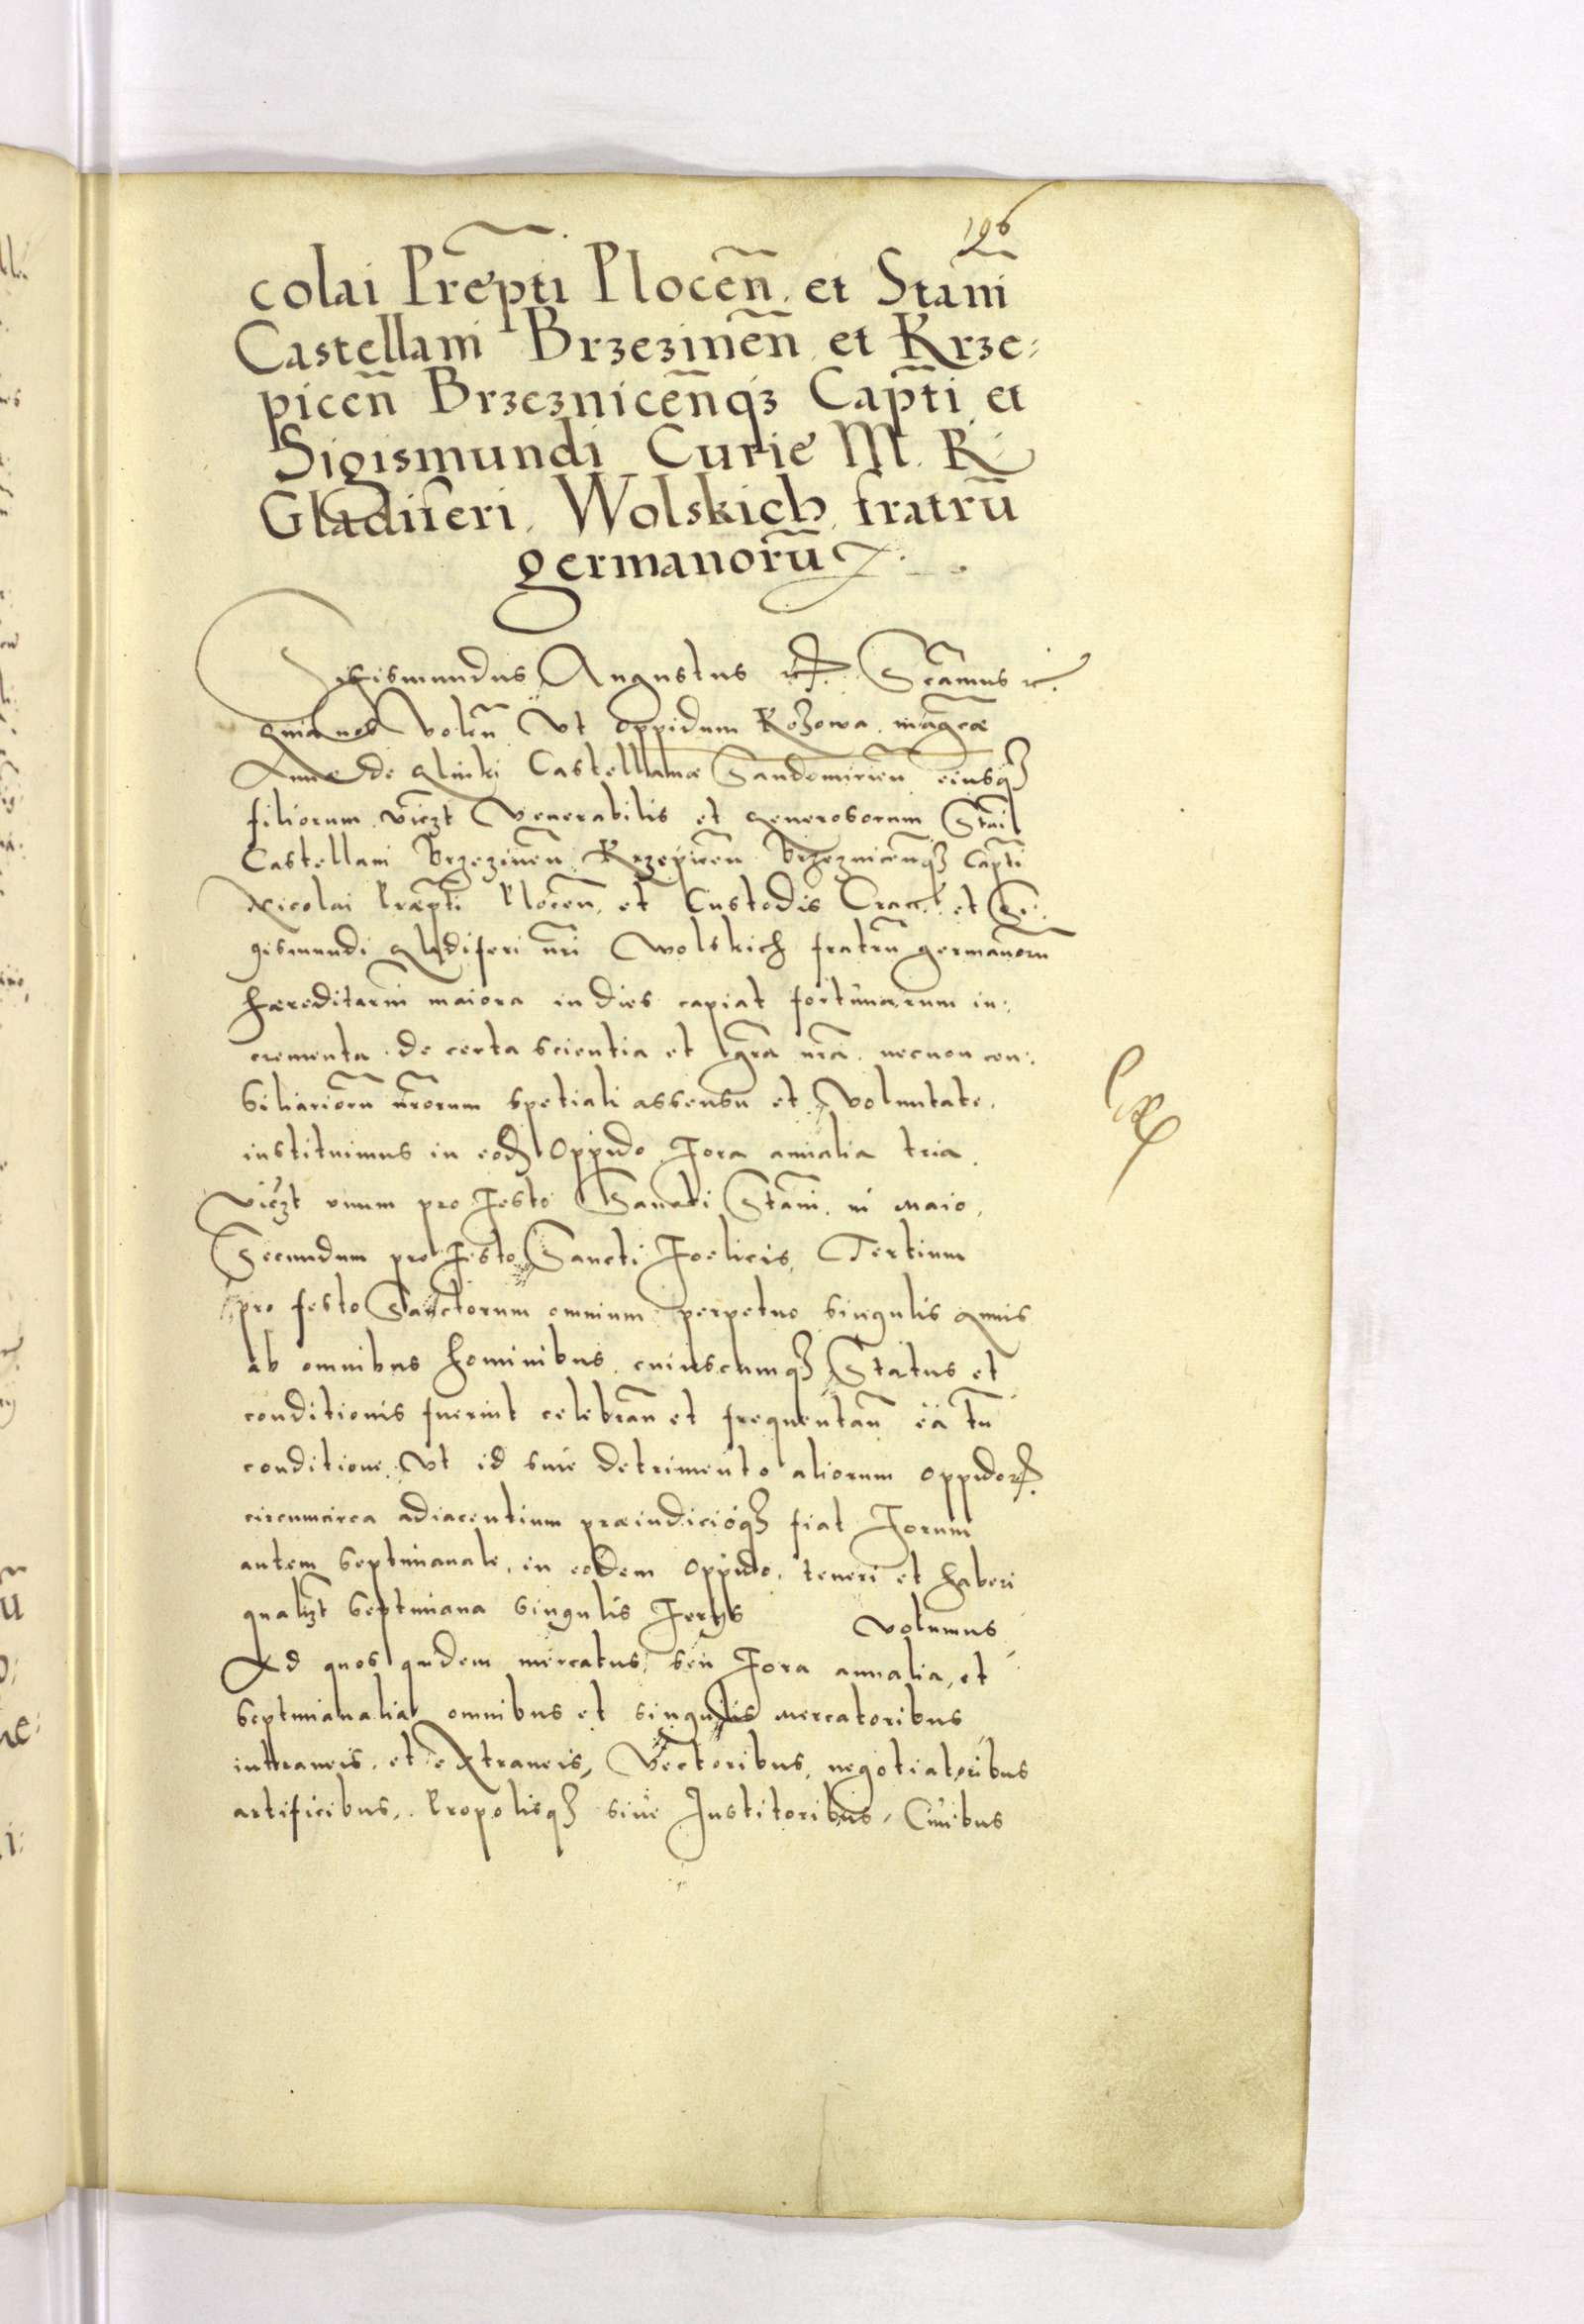 196
colai Prepti Plocen̄. et Stani
Castellani Brzezinen̄ et Krze:
picen̄ Brzeznicen̄q3 Capti et
Sigismundi Curie M. R.
Gladiferi. Wolskich fratrū
germanorū
Sigismundus Augustus etc. Scamus etc.
quia nos volen̄ Ut oppidum Kozowa. magcæ
Annæ de Glinki Castellanæ Sandomirien̄ eiusq3
filiorum. viczt Venerabilis et generosorum Stani
Castellani Brzezinen̄ Krzepicen̄ Brzeznicen̄q3 Capti
Nicolai Præpti Plocen̄. et Custodis Crac. et Si:
gismundi Gladiferi nri Wolskich fratrū germanorū
hæreditariū maiora in dies capiat fortunarum in:
crementa. de certa scientia et gra nra. necnon con:
siliariorū nrorum spetiali assensu et Voluntate.
instituimus in eod3 Oppido Fora annalia tria.
viczt vnum pro Festo Sancti Stani. in Maio.
Secundum pro Festo Sancti Foelicis. Tertium
pro festo Sanctorum omnium perpetuo singulis annis
ab omnibus hominibus. cuiuscumq3 Status et
conditionis fuerint celebran̄ et frequentan̄ ea tn̄
conditione. Ut id sine detrimento aliorum oppidor
circumcirca adiacentium præiudicioq3 fiat Forum
autem septimanale. in eodem Oppido. teneri et haberi
qualizt septimana singulis Ferys volumus
Ad quos quidem mercatus. seu Fora annalia, et
septimanalia omnibus et singulis mercatoribus
intraneis. et extraneis, Vectoribus, negotiatoribus
artificibus,. Propolisq3 sive Institoribus, Civibus